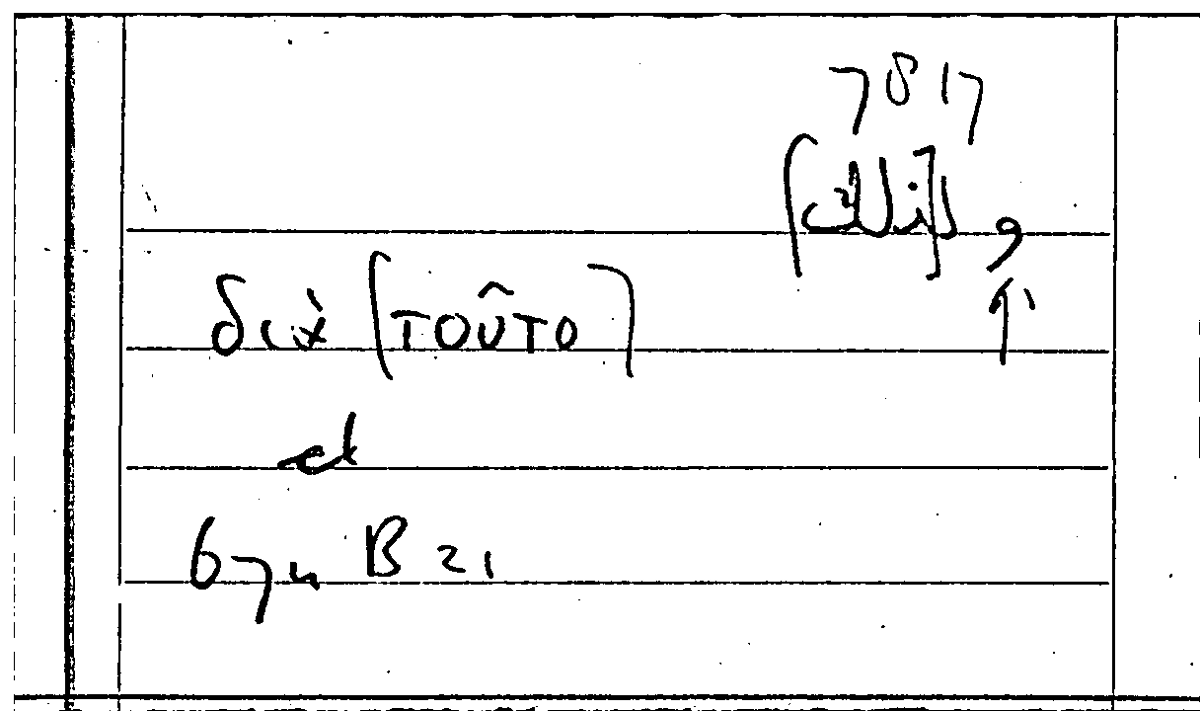 7817
و ل[ذلك]
διὰ [τοῦτο]
674 B 21